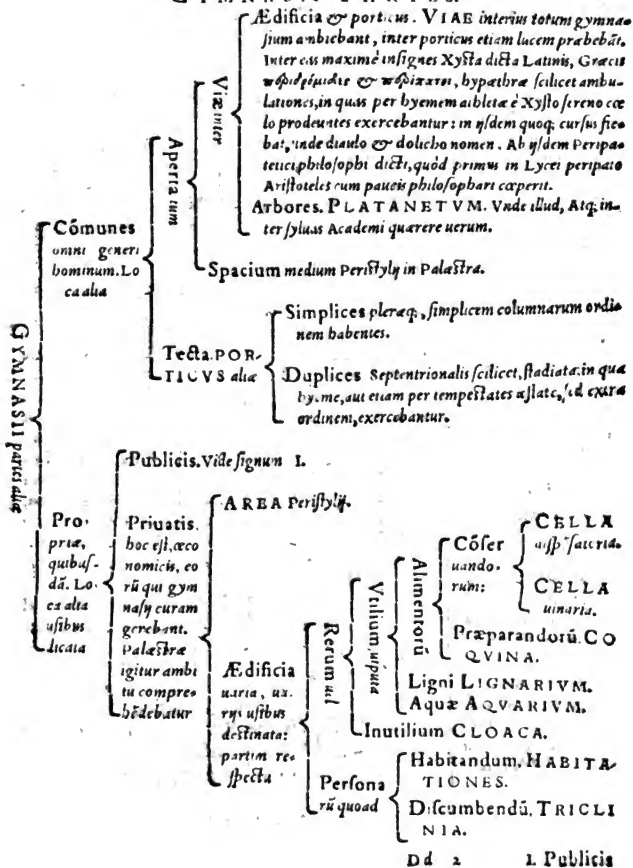 Ædificia & porticus. VIAE interius totum gymna-
sium ambiebant, inter porticus etiam lucem præbebāt.
Inter eas maximè insignes Xysta dicta Latinis, Græcis
& hypæthræ scilicet ambu-
lationes, in quas per hyemem athletæ è Xysto sereno cœ
lo prodeuntes exercebantur: in ijsdem quoq; cursus fie-
bat, unde diaulo & dolicho nomen. Ab ijsdem Peripa-
tetici philosophi dicti, quòd primus in Lycei peripato
Aristoteles cum paucis philosophari cœperit.
Arbores. PLATANETVM. Vnde illud, Atq; in-
ter syluas Academi quærere uerum.
Viæ inter
Aperta tum
Spacium medium Peristylij in Palæstra.
Cómunes
omni generi
hominum. Lo
ca alia
Simplices pleræq;, simplicem columnarum ordi-
nem habentes.
Tecta. POR-
TICVS aliæ
Duplices Septentrionalis scilicet, stadiata: in qua
hyeme, aut etiam per tempestates æstate, sed extra
ordinem, exercebantur.
GYMNASII partes aliæ
Publicis. Vide signum I.
Pro-
priæ,
quibus-
dā. Lo-
ca alia
usibus
dicata
Priuatis.
hoc est, œco
nomicis, eo
rū qui gym
nasij curam
gerebant.
Palæstræ
igitur ambi
tu compre-
hēdebatur
AREA Peristylij.
Ædificia
uaria, ua-
rijs usibus
destinata:
partim re-
specta
Rerum uel
Vtilium, utputa
Alimentorū
Cóser
uando-
rum:
CELLA
CELLA
uinaria.
Præparandorū. CO
QVINA.
Ligni LIGNARIVM.
Aquæ AQVARIVM.
Inutilium CLOACA.
Persona
rū quoad
Habitandum, HABITA-
TIONES.
Discumbendū, TRICLI
NIA.
Dd 2 I. Publicis